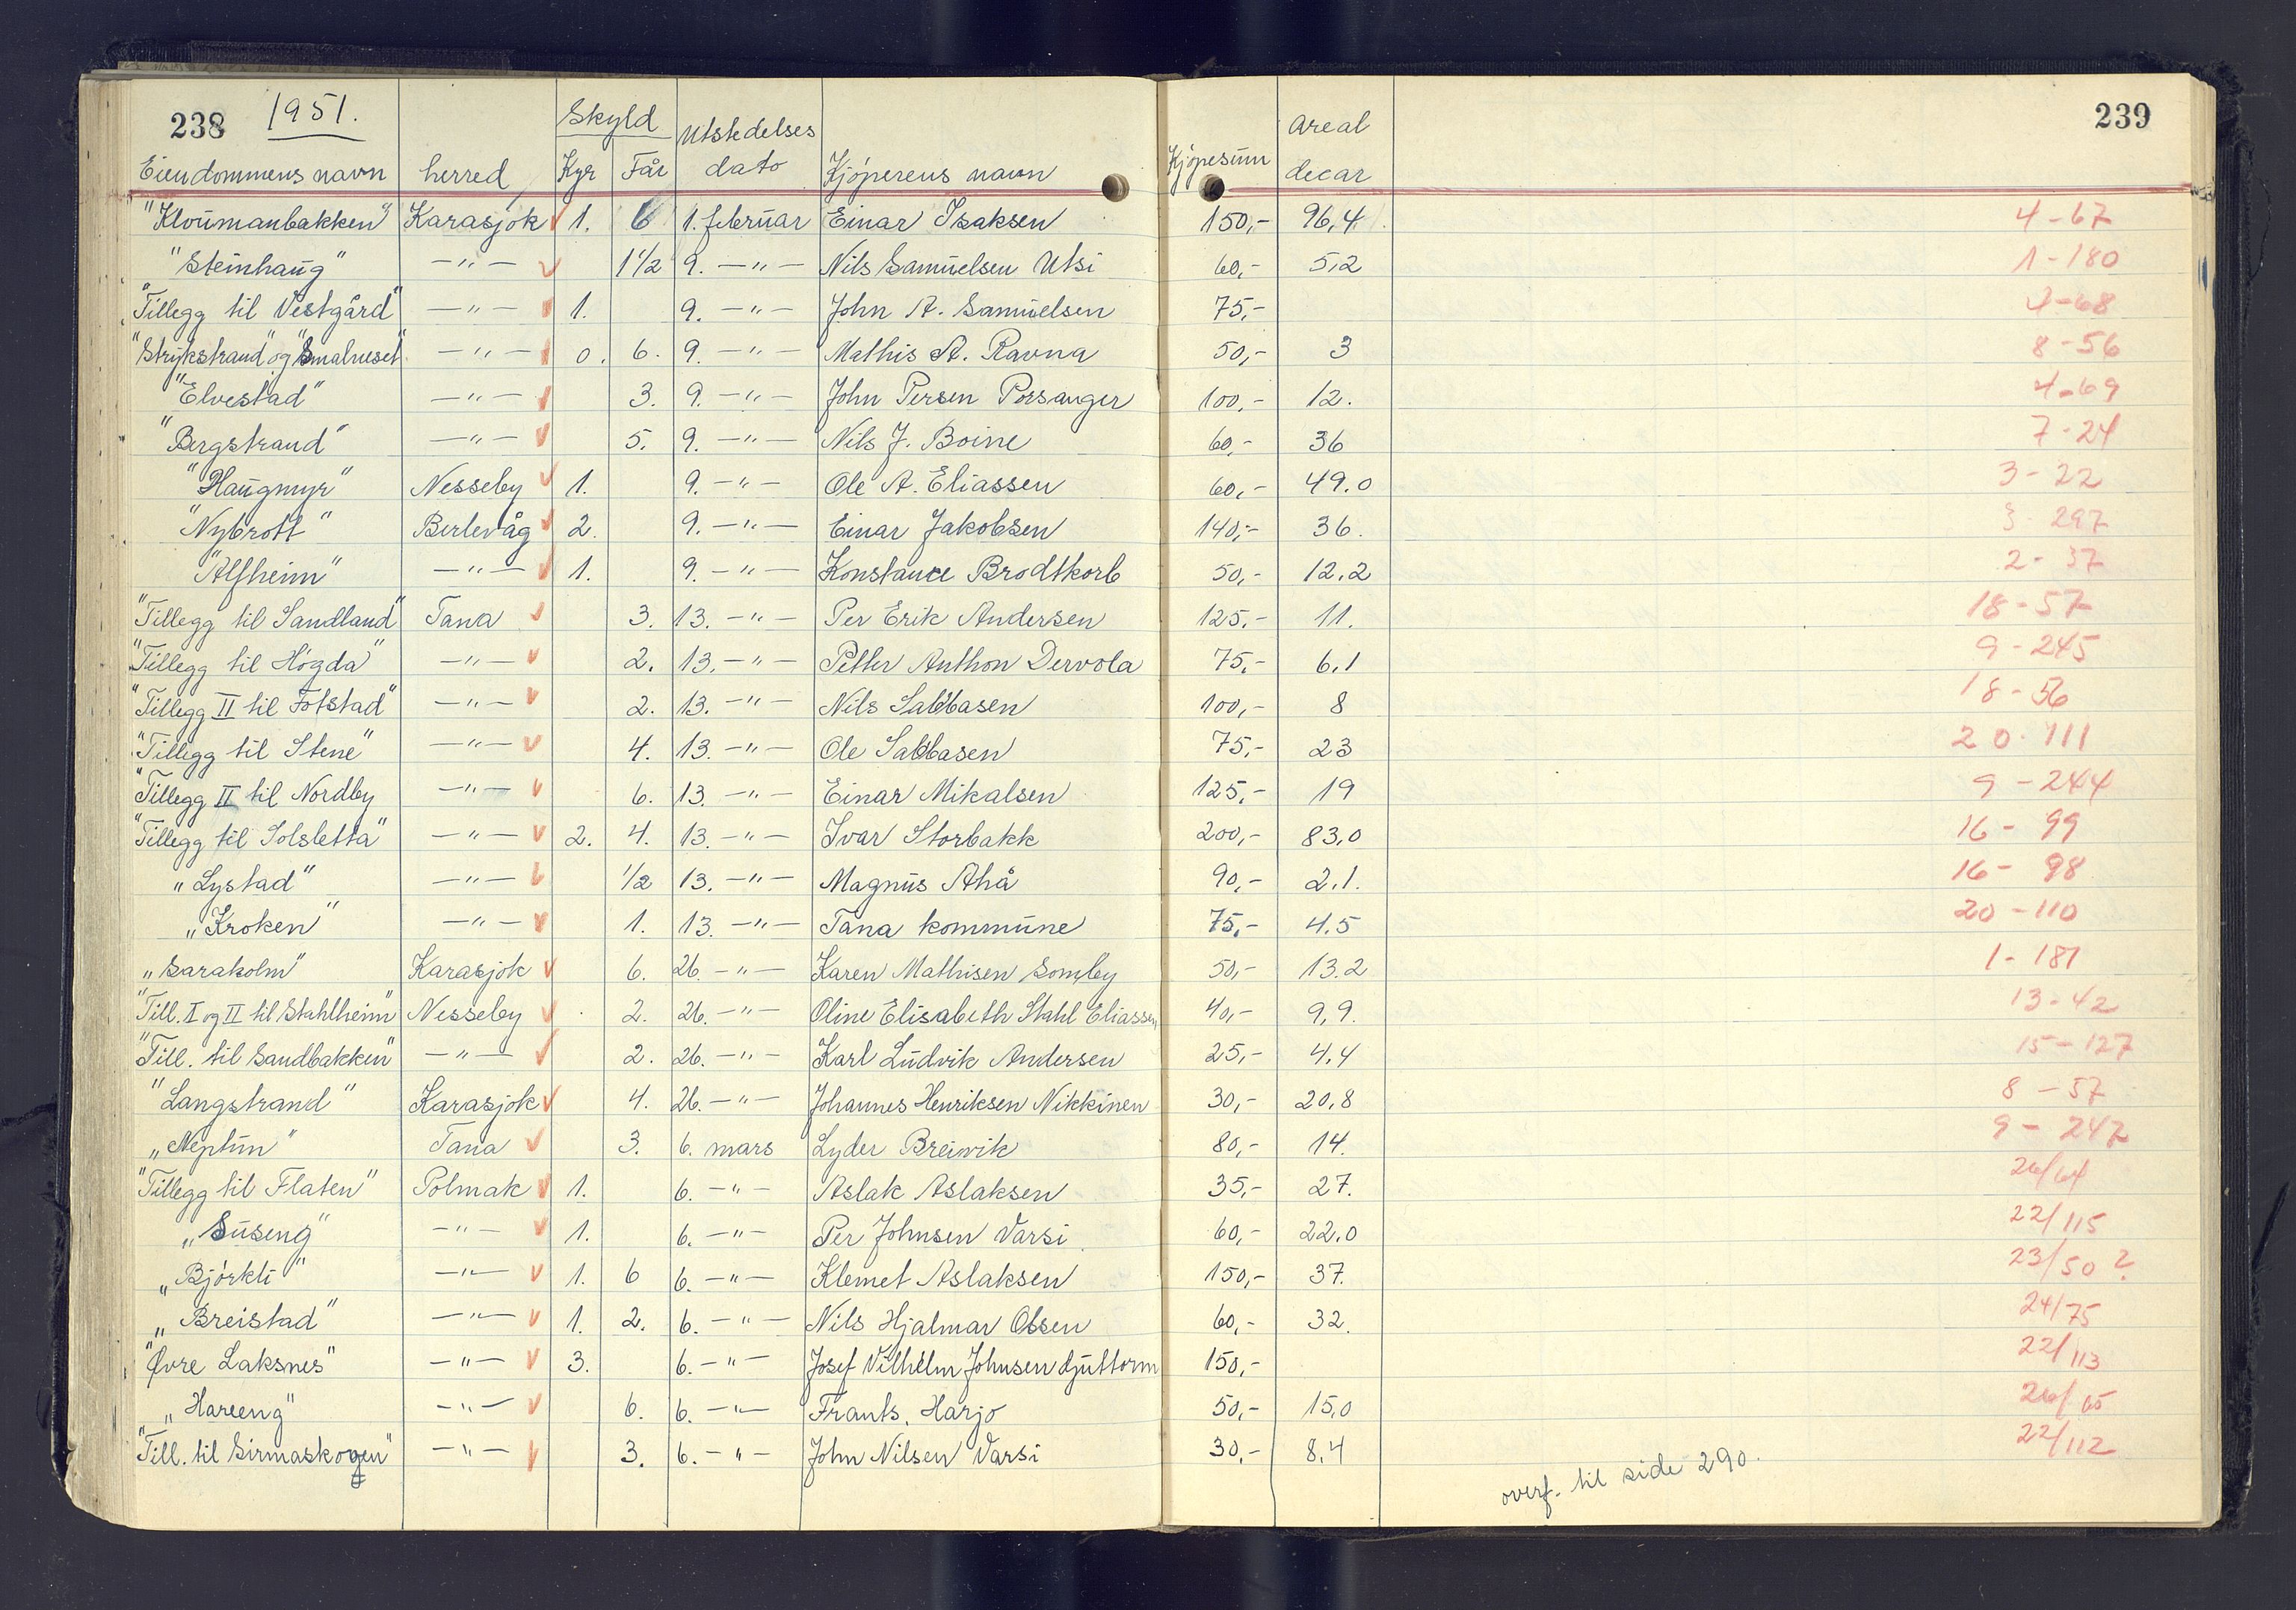 238 1951. 239
Skyld Utstedelses Areal
Eiendommens navn herred Kyr Får dato Kjøperens navn Kjøpesum decar
"Kloumanbakken" Karasjok 1. 6 1. februar Einar Isaksen 150,- 96,4 4-67
"Steinhaug" -"- 1 1/2 9. -"- Nils Samuelsen Utsi 60,- 5,2 1-180
"Tillegg til Vestgård" -"- 1. 9. -"- John A. Samuelsen 75,- 4-68
"Strykstrand" og "Smalneset" -"- 0. 6. 9. -"- Mathis A. Ravna 50,- 3 8-56
"Elvestad" -"- 3. 9. -"- John Persen Porsanger 100,- 12. 4-69
"Bergstrand" -"- 5. 9. -"- Nils J. Boine 60,- 36 7-24
"Haugmyr" Nesseby 1. 9. -"- Ole A. Eliassen 60,- 49.0 3-22
"Nybrott" Berlevåg 2. 9. -"- Einar Jakobsen 140,- 36. 3-297
"Alfheim" -"- 1. 9. -"- Konstance Brodtkorb 50,- 12.2 2-37
"Tillegg til Sandland" Tana 3. 13. -"- Per Erik Andersen 125,- 11. 18-57
"Tillegg til Høgda" -"- 2. 13. -"- Petter Anthon Dervola 75,- 6,1 9-245
"Tillegg II til Fotstad" -"- 2. 13. -"- Nils Sabbasen 100,- 8 18-56
"Tillegg til Stene" -"- 4. 13. -"- Ole Sabbasen 75,- 23 20-111
"Tillegg II til Nordby -"- 6. 13. -"- Einar Mikalsen 125,- 19 9-244
"Tillegg til Solsletta" -"- 2. 4. 13. -"- Ivar Storbakk 200,- 83,0 16-99
"Lystad" -"- 1/2 13. -"- Magnus Ahå 90,- 2.1. 16-98
"Kroken" -"- 1. 13. -"- Tana kommune 75,- 4.5 20-110
"Saraholm" Karasjok 6. 26. -"- Karen Mathisen Somby 50,- 13.2 1-181
"Till. I og II til Stahlheim" Nesseby 2. 26. -"- Oline Elisabeth Stahl Eliassen 40,- 9,9. 13-42
"Till. til Sandbakken" -"- 2. 26. -"- Karl Ludvik Andersen 25,- 4,4 15-127
"Langstrand" Karasjok 4. 26. -"- Johannes Henriksen Nikkinen 30,- 20,8 8-57
"Neptun" Tana 3. 6. mars Lyder Breivik 80,- 14. 9-247
"Tillegg til Flaten" Polmak 1. 6. -"- Aslak Aslaksen 35,- 27. 26/64
"Suseng" -"- 1. 6. -"- Per Johnsen Varsi 60,- 22.0 22/115
"Bjørkli" -"- 1. 6 6. -"- Klemet Aslaksen 150,- 37. 23/50 ?
"Breistad" -"- 1. 2. 6. -"- Nils Hjalmar Olsen 60,- 32. 24/75
"Øvre Laksnes" -"- 3. 6. -"- Josef Vilhelm Johnsen Guttorm 150,- 22/113
"Hareeng" -"- 6. 6. -"- Frants. Harjo 50,- 15,0 26/65
"Till. til Sirmaskogen" -"- 3. 6. -"- John Nilsen Varsi 30,- 8,4 22/112
overf. til side 290.